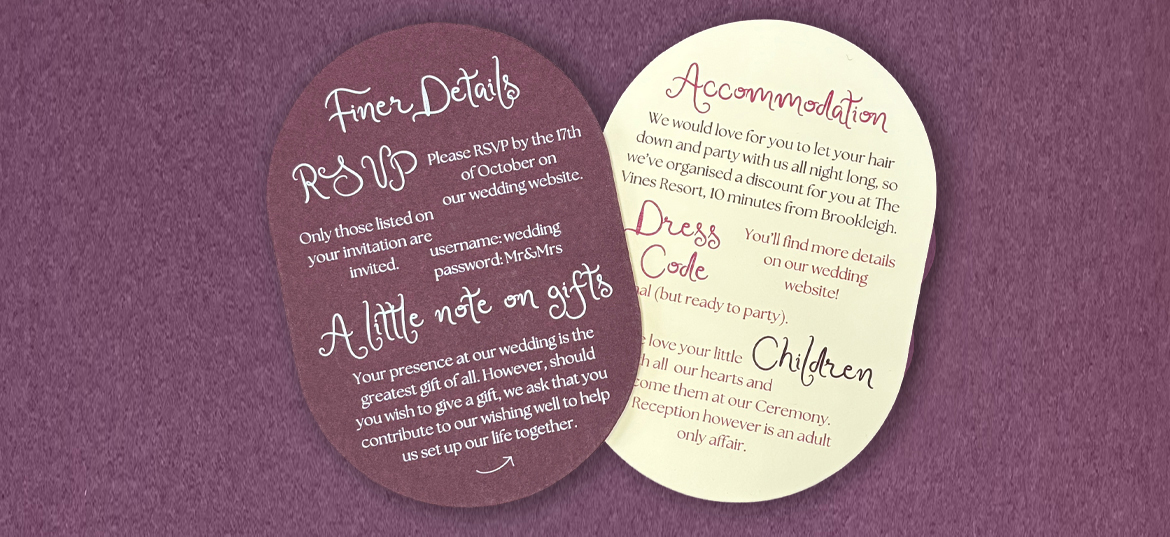 Finer Details
RSVP
Please RSVP by the 17th
of October on
our wedding website.
Only those listed on
your invitation are
invited.
username: wedding
password: Mr&Mrs
A little note on gifts
Your presence at our wedding is the
greatest gift of all. However, should
you wish to give a gift, we ask that you
contribute to our wishing well to help
us set up our life together.
Accommodation
We would love for you to let your hair
down and party with us all night long, so
we've organised a discount for you at The
Vines Resort, 10 minutes from Brookleigh.
Dress
Code
You'll find more details
on our wedding
website!
(but ready to party).
love your little
Children
all our hearts and
them at our Ceremony.
Reception however is an adult
only affair.